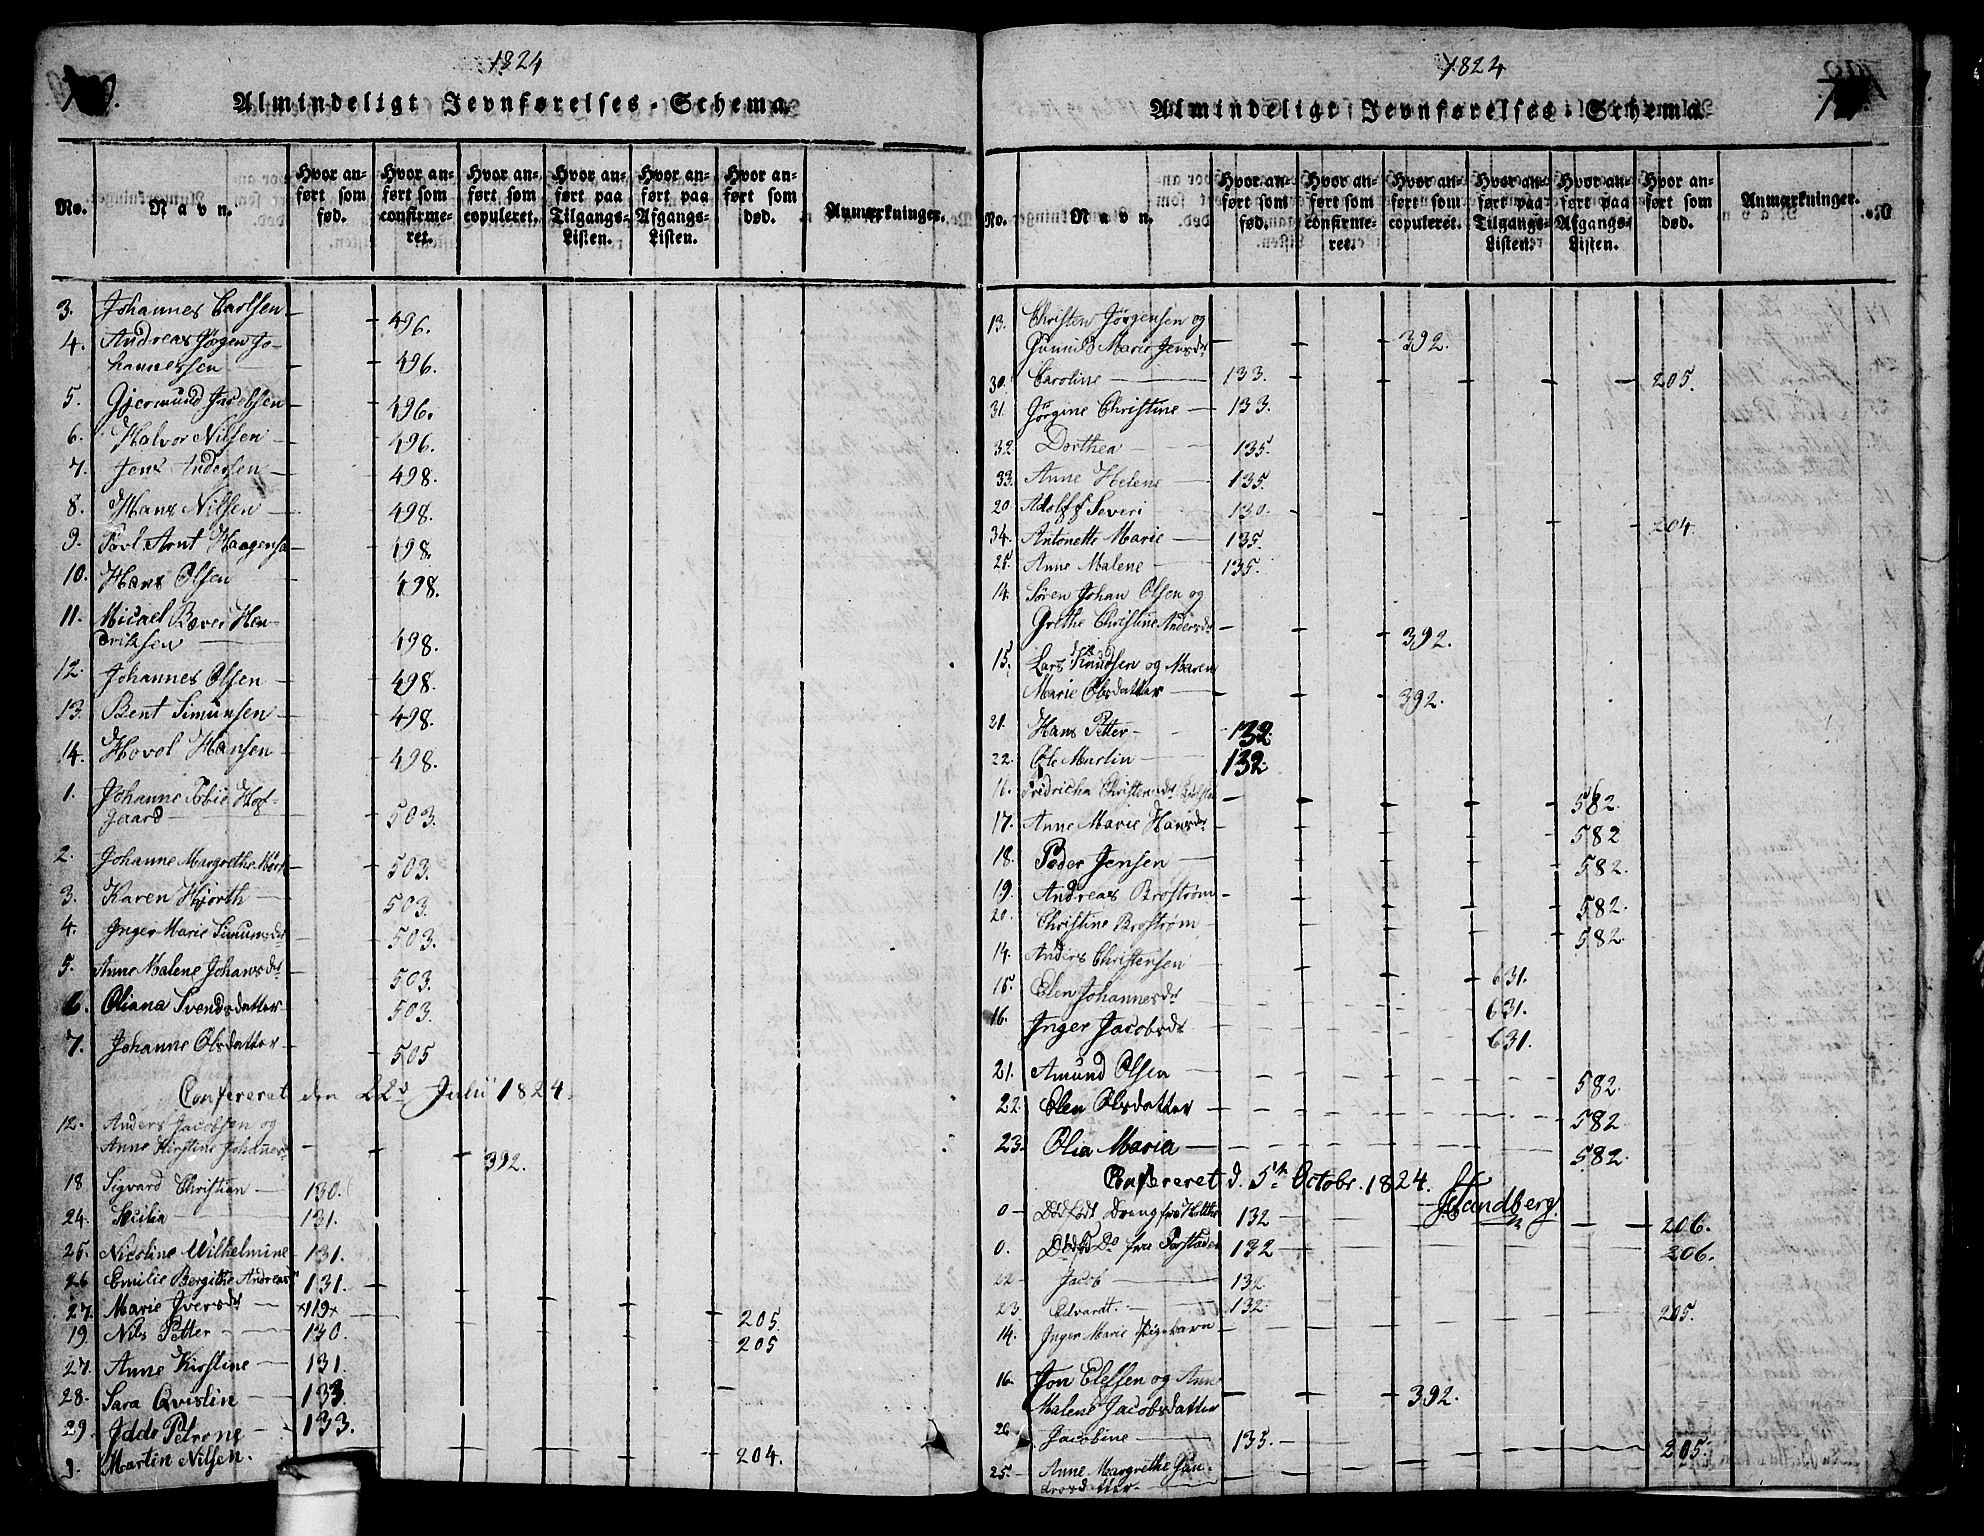 1824
Almindeligt Jevnførelses-Schema
No.
Navn.
Hvor anført som fød.
Hvor anført som confirmeret.
Hvor anført som copuleret.
Hvor anført paa Tilgangs-Listen.
Hvor anført paa Afgangs-Listen.
Hvor anført som død.
Anmærkninger.
3. Johannes Carlsen — 496.
4. Andreas Jørgen Jo-
hannessen — 496.
5. Gjermund Jacobsen — 496.
6. Halvor Nilsen — 496.
7. Jens Andersen — 498.
8. Hans Nilsen — 498.
9. Povl Arnt Haagensen — 498.
10. Hans Olsen — 498.
11. Micael Bæver Hen-
driksen — 498.
12. Johannes Olsen — 498.
13. Bent Simunsen — 498.
14. Hovel Hansen — 498.
1. Johanne Tobie Hof-
gaard — 503.
2. Johanne Margrethe — 503.
3. Karen Hjorth — 503.
4. Inger Marie Simunsdr — 503.
5. Anne Malene Johansdr — 503.
6. Oliana Svendsdatter — 503.
7. Johanne Olsdatter — 505
Confereret den 22d Julii 1824.
12. Anders Jacobsen og
Anne Kirstine Johannes — 392.
18 Sigvard Christian — 130.
24. Sicilia — 131.
25. Nicoline Wilhelmine 131.
26 Emilie Bergithe Andrea 131.
27. Marie Iversdr — ×119× — 205.
19. Nils Petter — 130. — 205
27. Anne Kirstine — 131.
28. Sara Qvistin — 133.
29. Idde Petrone — 133.
9. Martin Nilsen. — 204.
1824
Almindeligt Jevnførelses-Schema
No.
Navn.
Hvor anført som fød.
Hvor anført som confirmeret.
Hvor anført som copuleret.
Hvor anført paa Tilgangs-Listen.
Hvor anført paa Afgangs-Listen.
Hvor anført som død.
Anmærkninger.
13. Christen Jørgensen og
Gunild Marie Jensdr — 392.
30. Caroline — 133. — 205.
31. Jørgine Christine — 133.
32 Dorthea — 135.
33. Anne Helene — 135.
20 Adolff Severi 130. — 204.
34. Antonette Marie — 135.
25. Anne Malene — 135.
14. Søren Johan Olsen og
Grethe Christine Andersdr — 392.
15. Lars Knudsen og Maren
Marie Olsdatter — 392.
21. Hans Petter — 132
22. Ole Martin — 132
16. Fridricha Christensdr — 582.
17. Anne Marie Hansdr — 582
18. Peder Jensen — 582.
19. Andreas Brostrøm — 582.
20. Christine Brostrøm — 582.
14. Anders Christensen — 631.
15. Elen Johannesdr — 631.
16. Inger Jacobsdr — 631.
21. Amund Olsen — 582.
22. Elen Olsdatter — 582.
23. Olia Maria — 582.
Confereret d. 5te Octobr. 1824. Sandberg.
0 — Dødfødt Dreng fra 132 — 206.
0. Dødfd Do fra 132 — 206.
22 — Jacob — 132
23 Edvardt. — 132. — 205.
14. Inger Marie Pigebarn
16. Jon Elefsen og Ann
Malene Jacobsdatter — 392.
26 Jacobine — 135. — 205.
25. Anne Margrethe Gun-